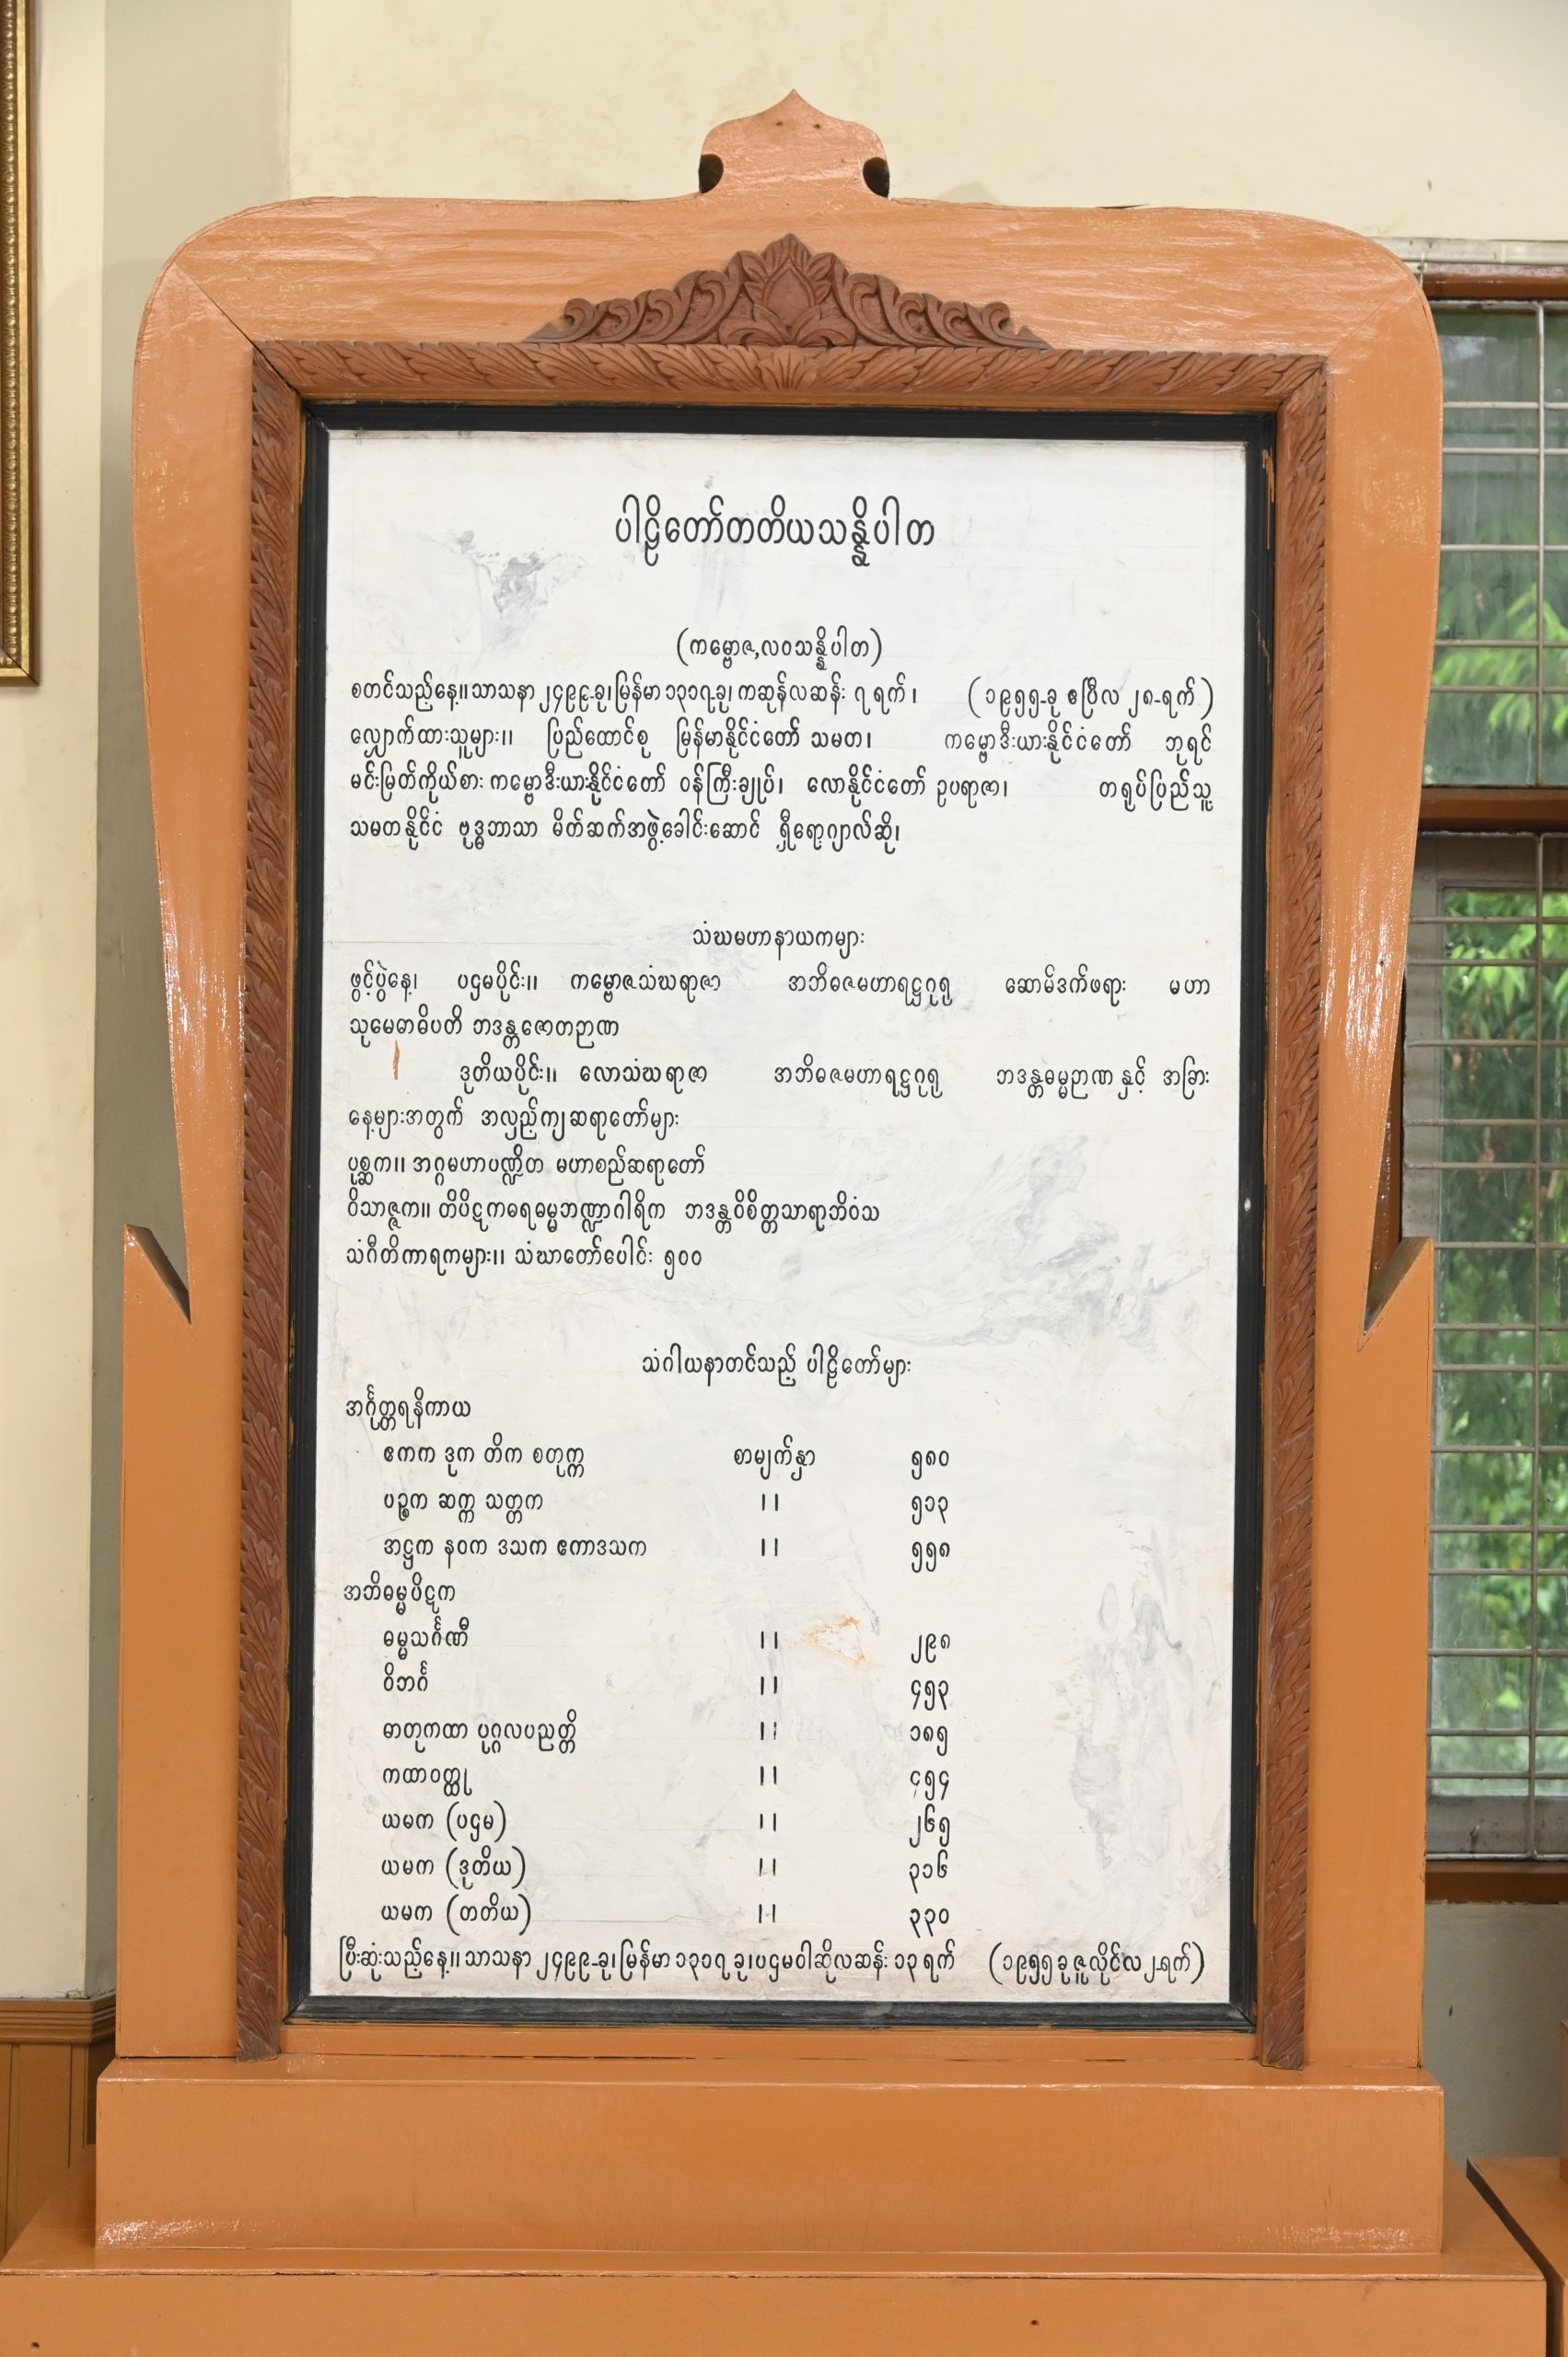 ပါဠိတော်တတိယသန္နိပါတ
(ကမ္ဗောဇ,လဝသန္နိပါတ)
စတင်သည့်နေ့။ သာသနာ ၂၄၉၉-ခု၊ မြန်မာ ၁၃၁၇-ခု၊ ကဆုန်လဆန်း ၇ ရက် ၊ (၁၉၅၅-ခု ဧပြီလ ၂၈-ရက်)
လျှောက်ထားသူများ။ ပြည်ထောင်စု မြန်မာနိုင်ငံတော် သမတ၊ ကမ္ဗောဒီးယားနိုင်ငံတော် ဘုရင်
မင်းမြတ်ကိုယ်စား ကမ္ဗောဒီးယားနိုင်ငံတော် ဝန်ကြီးချုပ်၊ လောနိုင်ငံတော် ဥပရာဇာ၊ တရုပ်ပြည်သူ့
သမတနိုင်ငံ ဗုဒ္ဓဘာသာ မိတ်ဆက်အဖွဲ့ခေါင်းဆောင် ရှီရော့ဂျာလ်ဆို၊
သံဃမဟာနာယကများ
ဖွင့်ပွဲနေ့၊ ပဌမပိုင်း။ ကမ္ဗောဇသံဃရာဇာ အဘိဓဇမဟာရဋ္ဌဂုရု ဆောမ်ဒက်ဖရား မဟာ
သုမေဓာဓိပတိ ဘဒန္တဇောတဉာဏ
ဒုတိယပိုင်း။ လောသံဃရာဇာ အဘိဓဇမဟာရဋ္ဌဂုရု ဘဒန္တဓမ္မဉာဏ နှင့် အခြား
နေ့များအတွက် အလှည့်ကျဆရာတော်များ
ပုစ္ဆက။ အဂ္ဂမဟာပဏ္ဍိတ မဟာစည်ဆရာတော်
ဝိသာဇ္ဇက။ တိပိဋကဓရဓမ္မဘဏ္ဍာဂါရိက ဘဒန္တဝိစိတ္တသာရာဘိဝံသ
သံဂီတိကာရကများ။ သံဃာတော်ပေါင်း ၅၀၀
သံဂါယနာတင်သည့် ပါဠိတော်များ
အင်္ဂုတ္တရနိကာယ
ဧကက ဒုက တိက စတုက္က စာမျက်နှာ ၅၈၀
ပဉ္စက ဆက္က သတ္တက ၊၊ ၅၁၃
အဋ္ဌက နဝက ဒသက ဧကာဒသက ၊၊ ၅၅၈
အဘိဓမ္မပိဋက
ဓမ္မသင်္ဂဏီ ၊၊ ၂၉၈
ဝိဘင်္ဂ ၊၊ ၄၅၃
ဓာတုကထာ ပုဂ္ဂလပညတ္တိ ၊၊ ၁၈၅
ကထာဝတ္ထု ၊၊ ၄၅၄
ယမက (ပဌမ) ၊၊ ၂၆၅
ယမက (ဒုတိယ) ၊၊ ၃၁၆
ယမက (တတိယ) ၊၊ ၃၃၀
ပြီးဆုံးသည့်နေ့။ သာသနာ ၂၄၉၉-ခု၊ မြန်မာ ၁၃၁၇ ခု၊ ပဌမဝါဆိုလဆန်း ၁၃ ရက် (၁၉၅၅ ခု ဇူလိုင်လ ၂-ရက်)